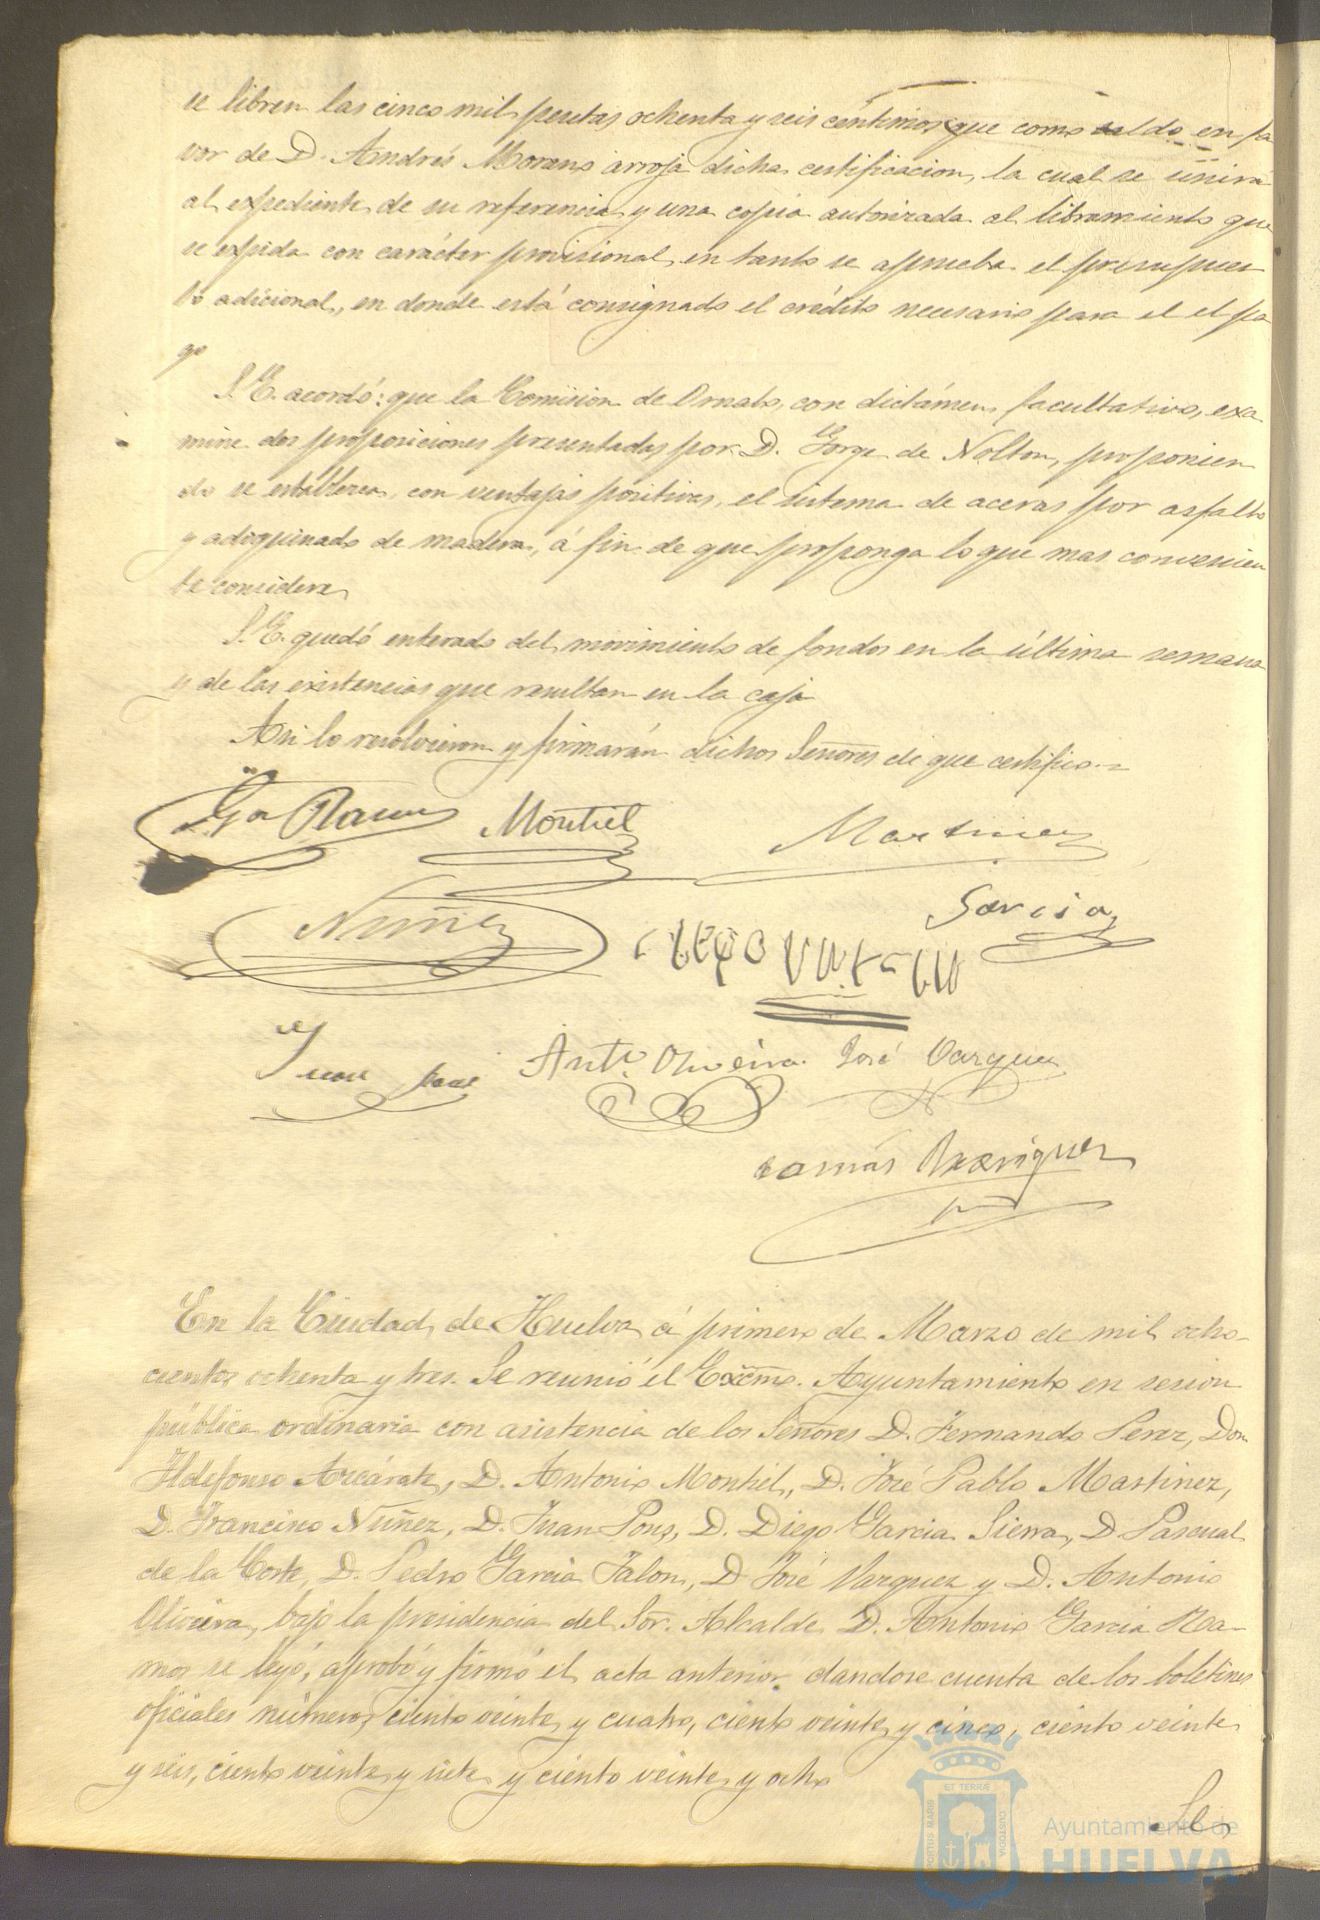 se libren las cinco mil pesetas ochenta y seis céntimos que como saldo en fa
vor de D. Andrés Moreno arroja dicha certificacion, la cual se unira
al expediente de su referencia y una copia autorizada al libramiento que
se expida con carácter provisional, en tanto se aprueba el presupues
to adicional, en donde está consignado el crédito necesario para el el pa
go
S. E. acordó: que la Comision de Ornato, con dictámen facultativo, exa
mine dos proposiciones presentadas por D. Jorge de Nolton, proponien
do se establezca, con ventajas positivas, el sistema de aceras por asfalto
y adoquinado de madera, á fin de que proponga lo que mas convenien
te considere
S. E. quedó enterado del movimiento de fondos en la última semana
y de las existencias que resultan en la caja
Asi lo resolvieron y firmarán dichos Señores de que certifico.=
Ga Ramos Montiel Martinez
Nuñez Garcia
Juan Pons Anto. Oliveira José Vazquez
Tomás Rodriguez
En la Ciudad de Huelva á primero de Marzo de mil ocho-
cientos ochenta y tres. Se reunió el Excmo. Ayuntamiento en sesion
pública ordinaria con asistencia de los Señores D. Fernando Perez, Don
Ildefonso Azcárate, D. Antonio Montiel, D. José Pablo Martinez,
D. Francisco Nuñez, D. Juan Pons, D. Diego Garcia Sierra, D. Pascual
de la Corte, D. Pedro Garcia Jalon, D José Vazquez y D. Antonio
Oliveira, bajo la presidencia del Sor. Alcalde D. Antonio Garcia Ra-
mos se leyó, aprobó y firmó el acta anterior dandose cuenta de los boletines
oficiales números ciento veinte y cuatro, ciento veinte y cinco, ciento veinte
y seis, ciento veinte y siete y ciento veinte y ocho
Se
ET TERRÆ
PORTUS MARIS
CUSTODIA
Ayuntamiento de
HUELVA